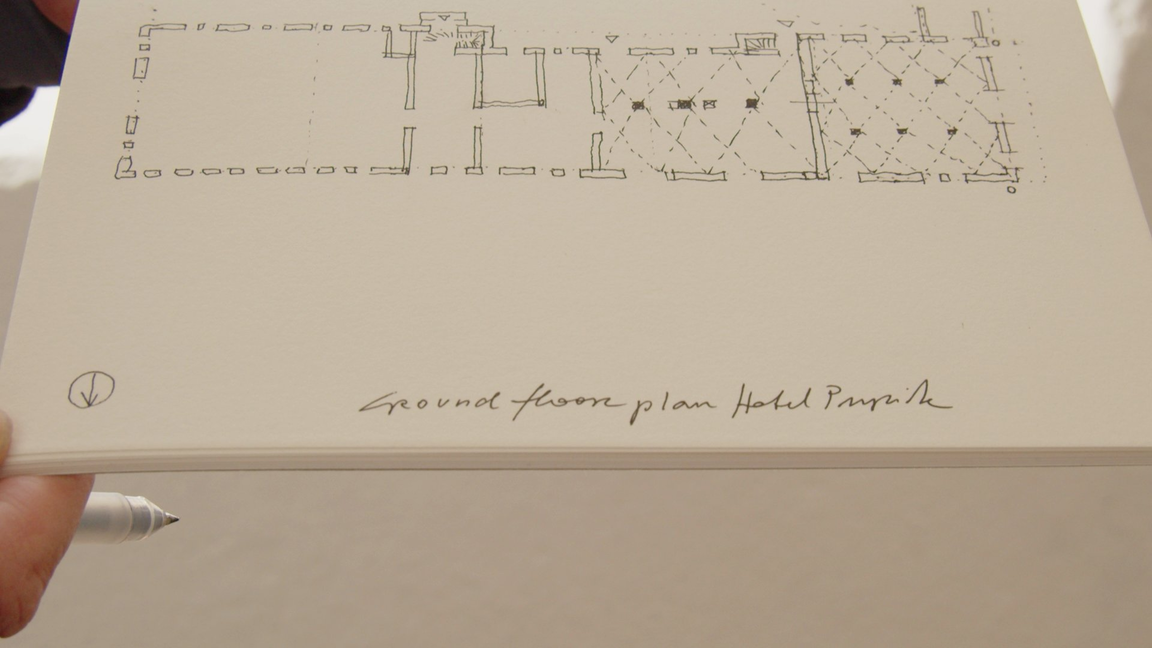 Ground floor plan Hotel